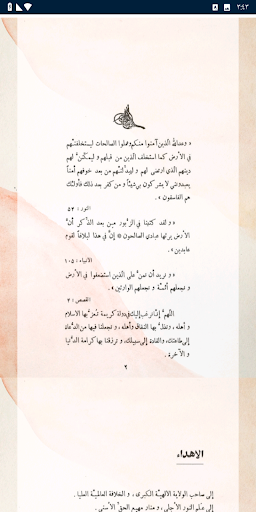 ٢:٤٢
« وعد الله الذين آمنوا منكم وعملوا الصالحات ليستخلفنهم
في الأرض كما استخلف الذين من قبلهم و ليمكنن لهم
دينهم الذي ارتضى لهم و ليبدلنهم من بعد خوفهم أمناً
يعبدونني لا يشركون بي شيئاً و من كفر بعد ذلك فأولئك
هم الفاسقون »
النور : ٥٣
« و لقد كتبنا في الزبور من بعد الذكر أن
الأرض يرثها عبادي الصالحون * إن في هذا لبلاغاً لقوم
عابدين »
الأنبياء : ١٠٥
« و نريد أن نمن على الذين استضعفوا في الأرض
و نجعلهم أئمة و نجعلهم الوارثين »
القصص : ٣
اللهم إنا نرغب إليك في دولة كريمة تعز بها الاسلام
و أهله ، و تذل بها النفاق وأهله ، و تجعلنا فيها من الدعاة
إلى طاعتك ، و القادة إلى سبيلك ، و ترزقنا بها كرامة الدنيا
و الآخرة .
٢
الإهداء
إلى صاحب الولاية الالهية الكبرى ، و الخلافة العالمية العليا .
إلى علم النور الأجلى ، و منار مهيع الحق الأسنى .